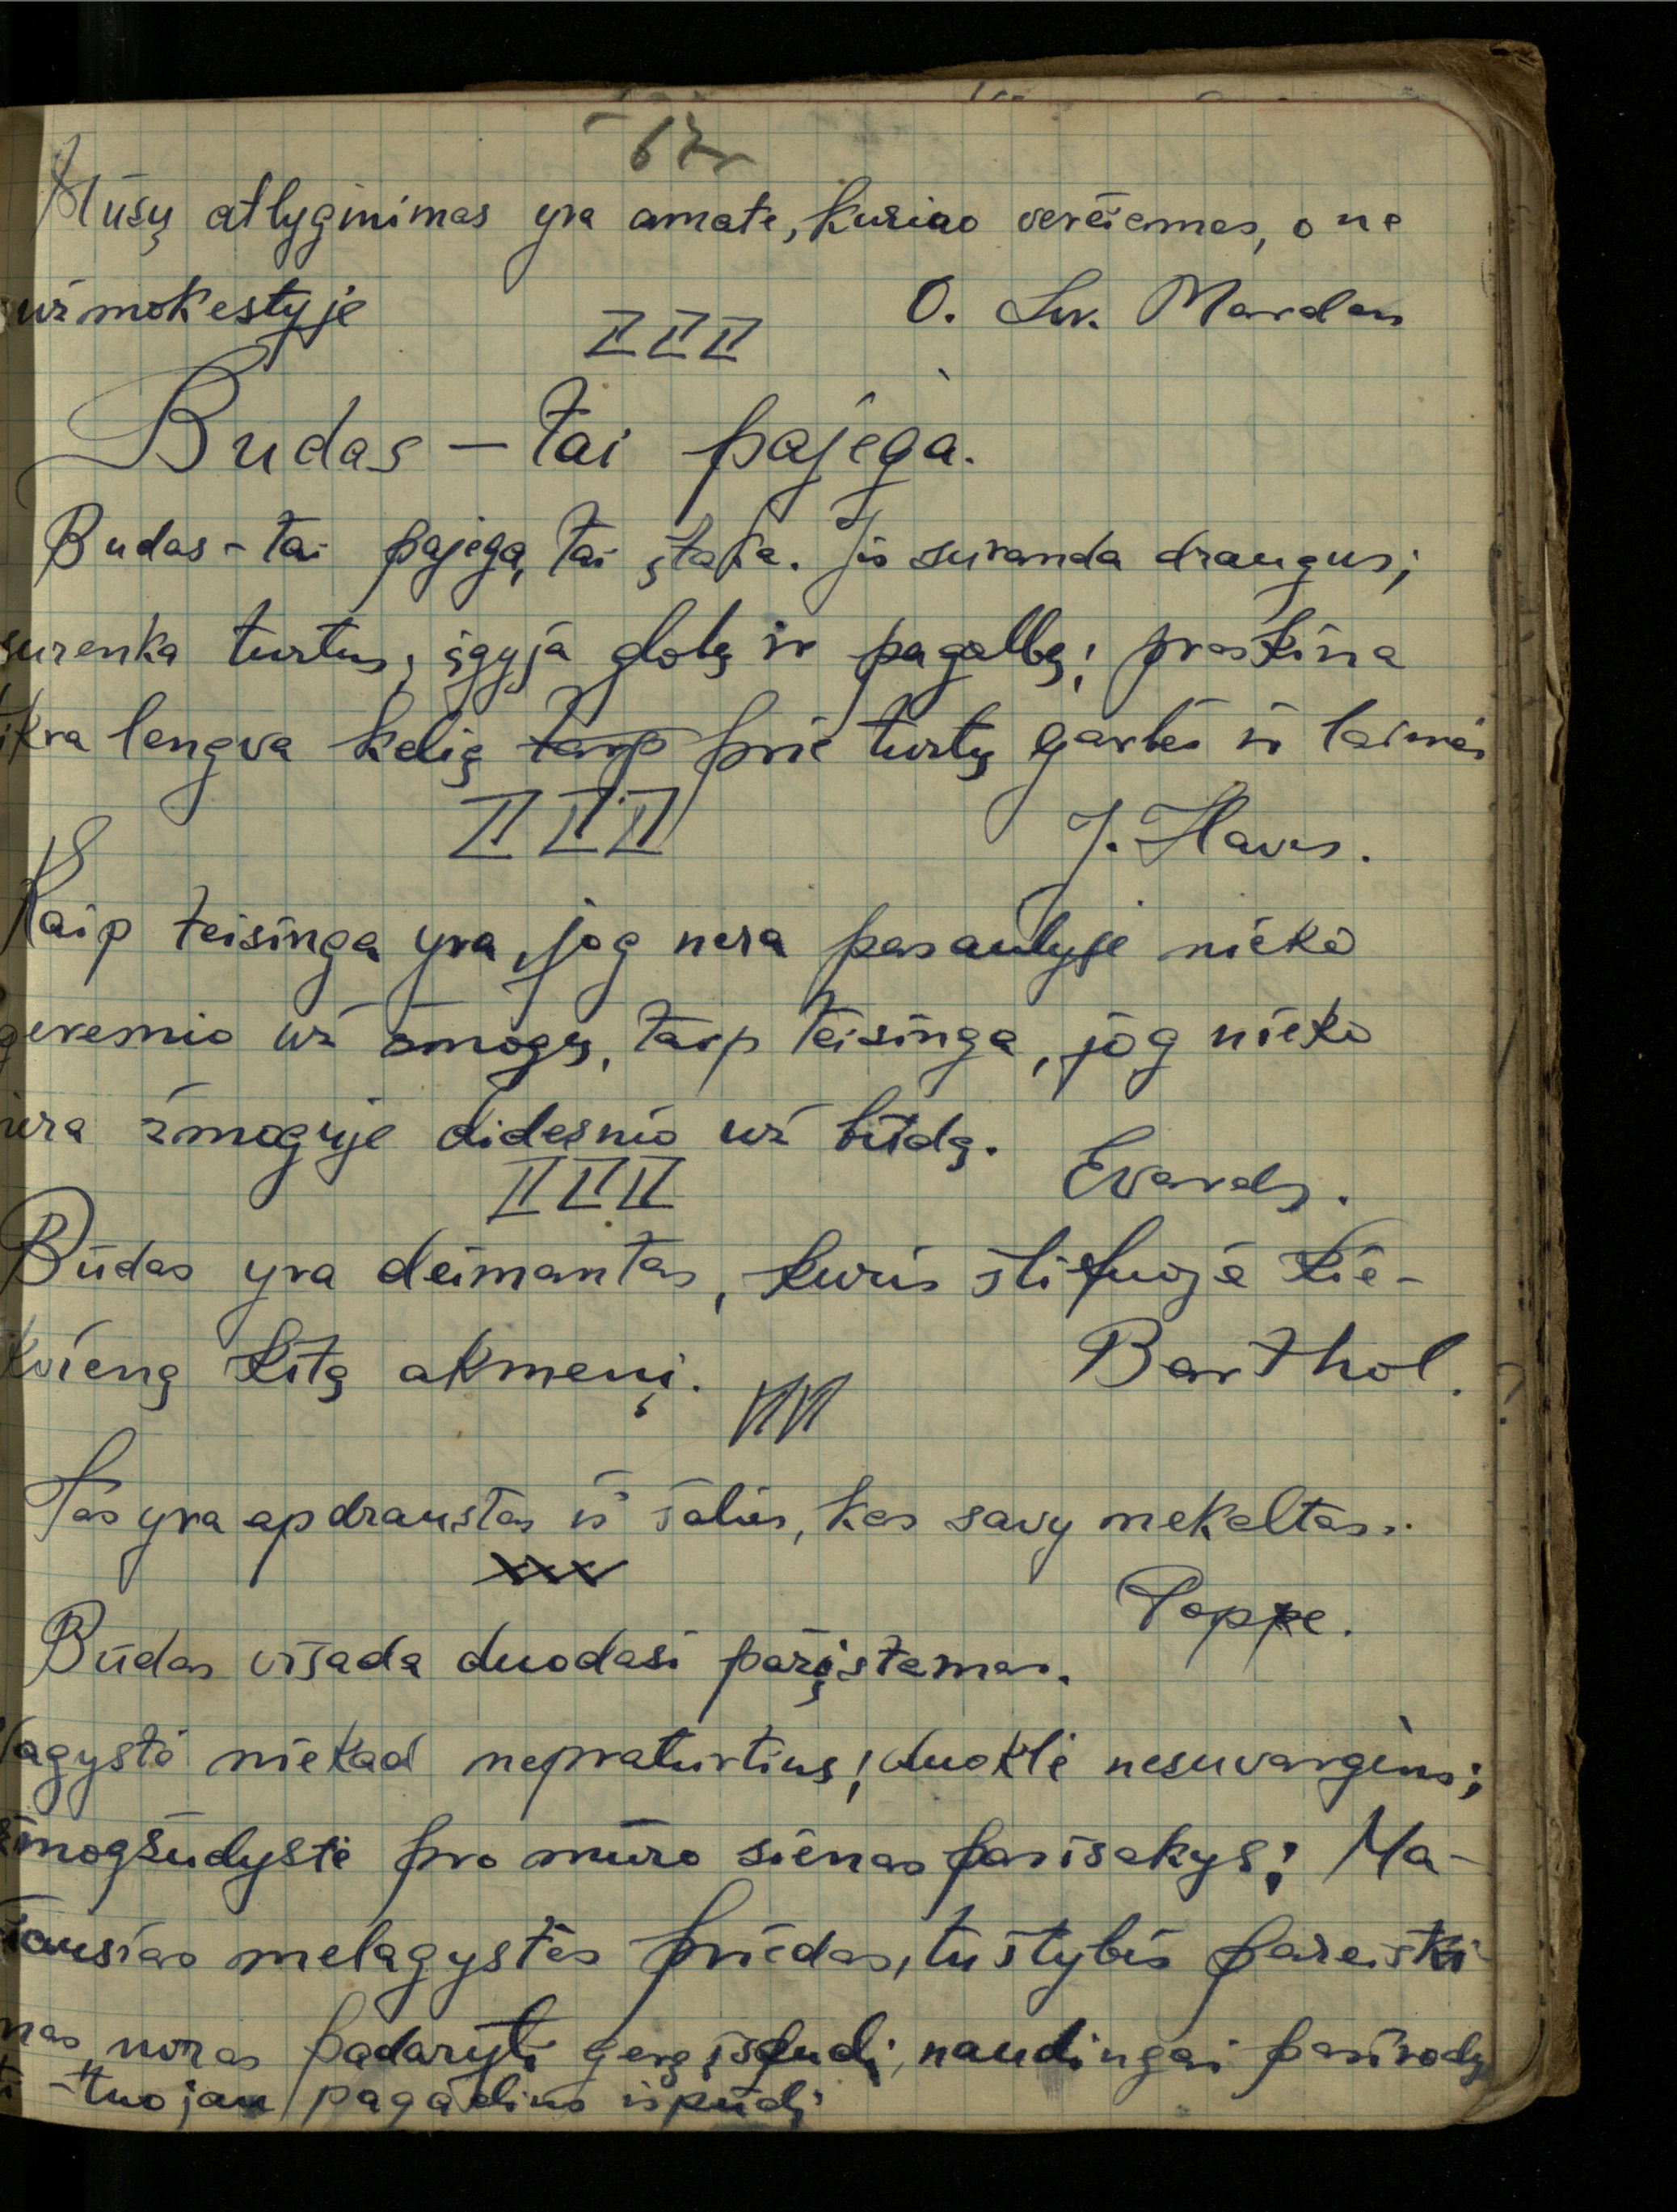 67r
Mūsų atlyginimas yra amate, kuriao verčiamas, o ne
užmokestyje
O. Sw. Mardan
Budas – tai pajėga.
Budas – tai pajėga, tai įtaka. Jis suranda draugus;
surenka turtus; įgyja globą ir pagalbą; praskina
tikra lengva kelią tarp prie turtų garbės ir laimės
J. Haves.
Kaip teisinga yra, jog nera pasaulyje nieko
geresnio už žmogų, taip teisinga, jog nieko
nėra žmoguje didesnio už būdą.
Evards.
Būdas yra deimantas, kuris šlifuoja kie-
kvieną kitą akmenį.
Barthol.
Tas yra apdraustas iš šalies, kas savy nekaltas.
Poppe.
Būdas visada duodasi pažįstamas.
Vagystė niekad nepraturtins; duoklė nesuvargins;
žmogžudystė pro mūro sienas pasisakys; Ma-
žiausias melagystės priedas, tuštybės pareiški-
mas noras padaryti gerą įspudį, naudingai pasirody
ti – tuojau pagadins įspūdį